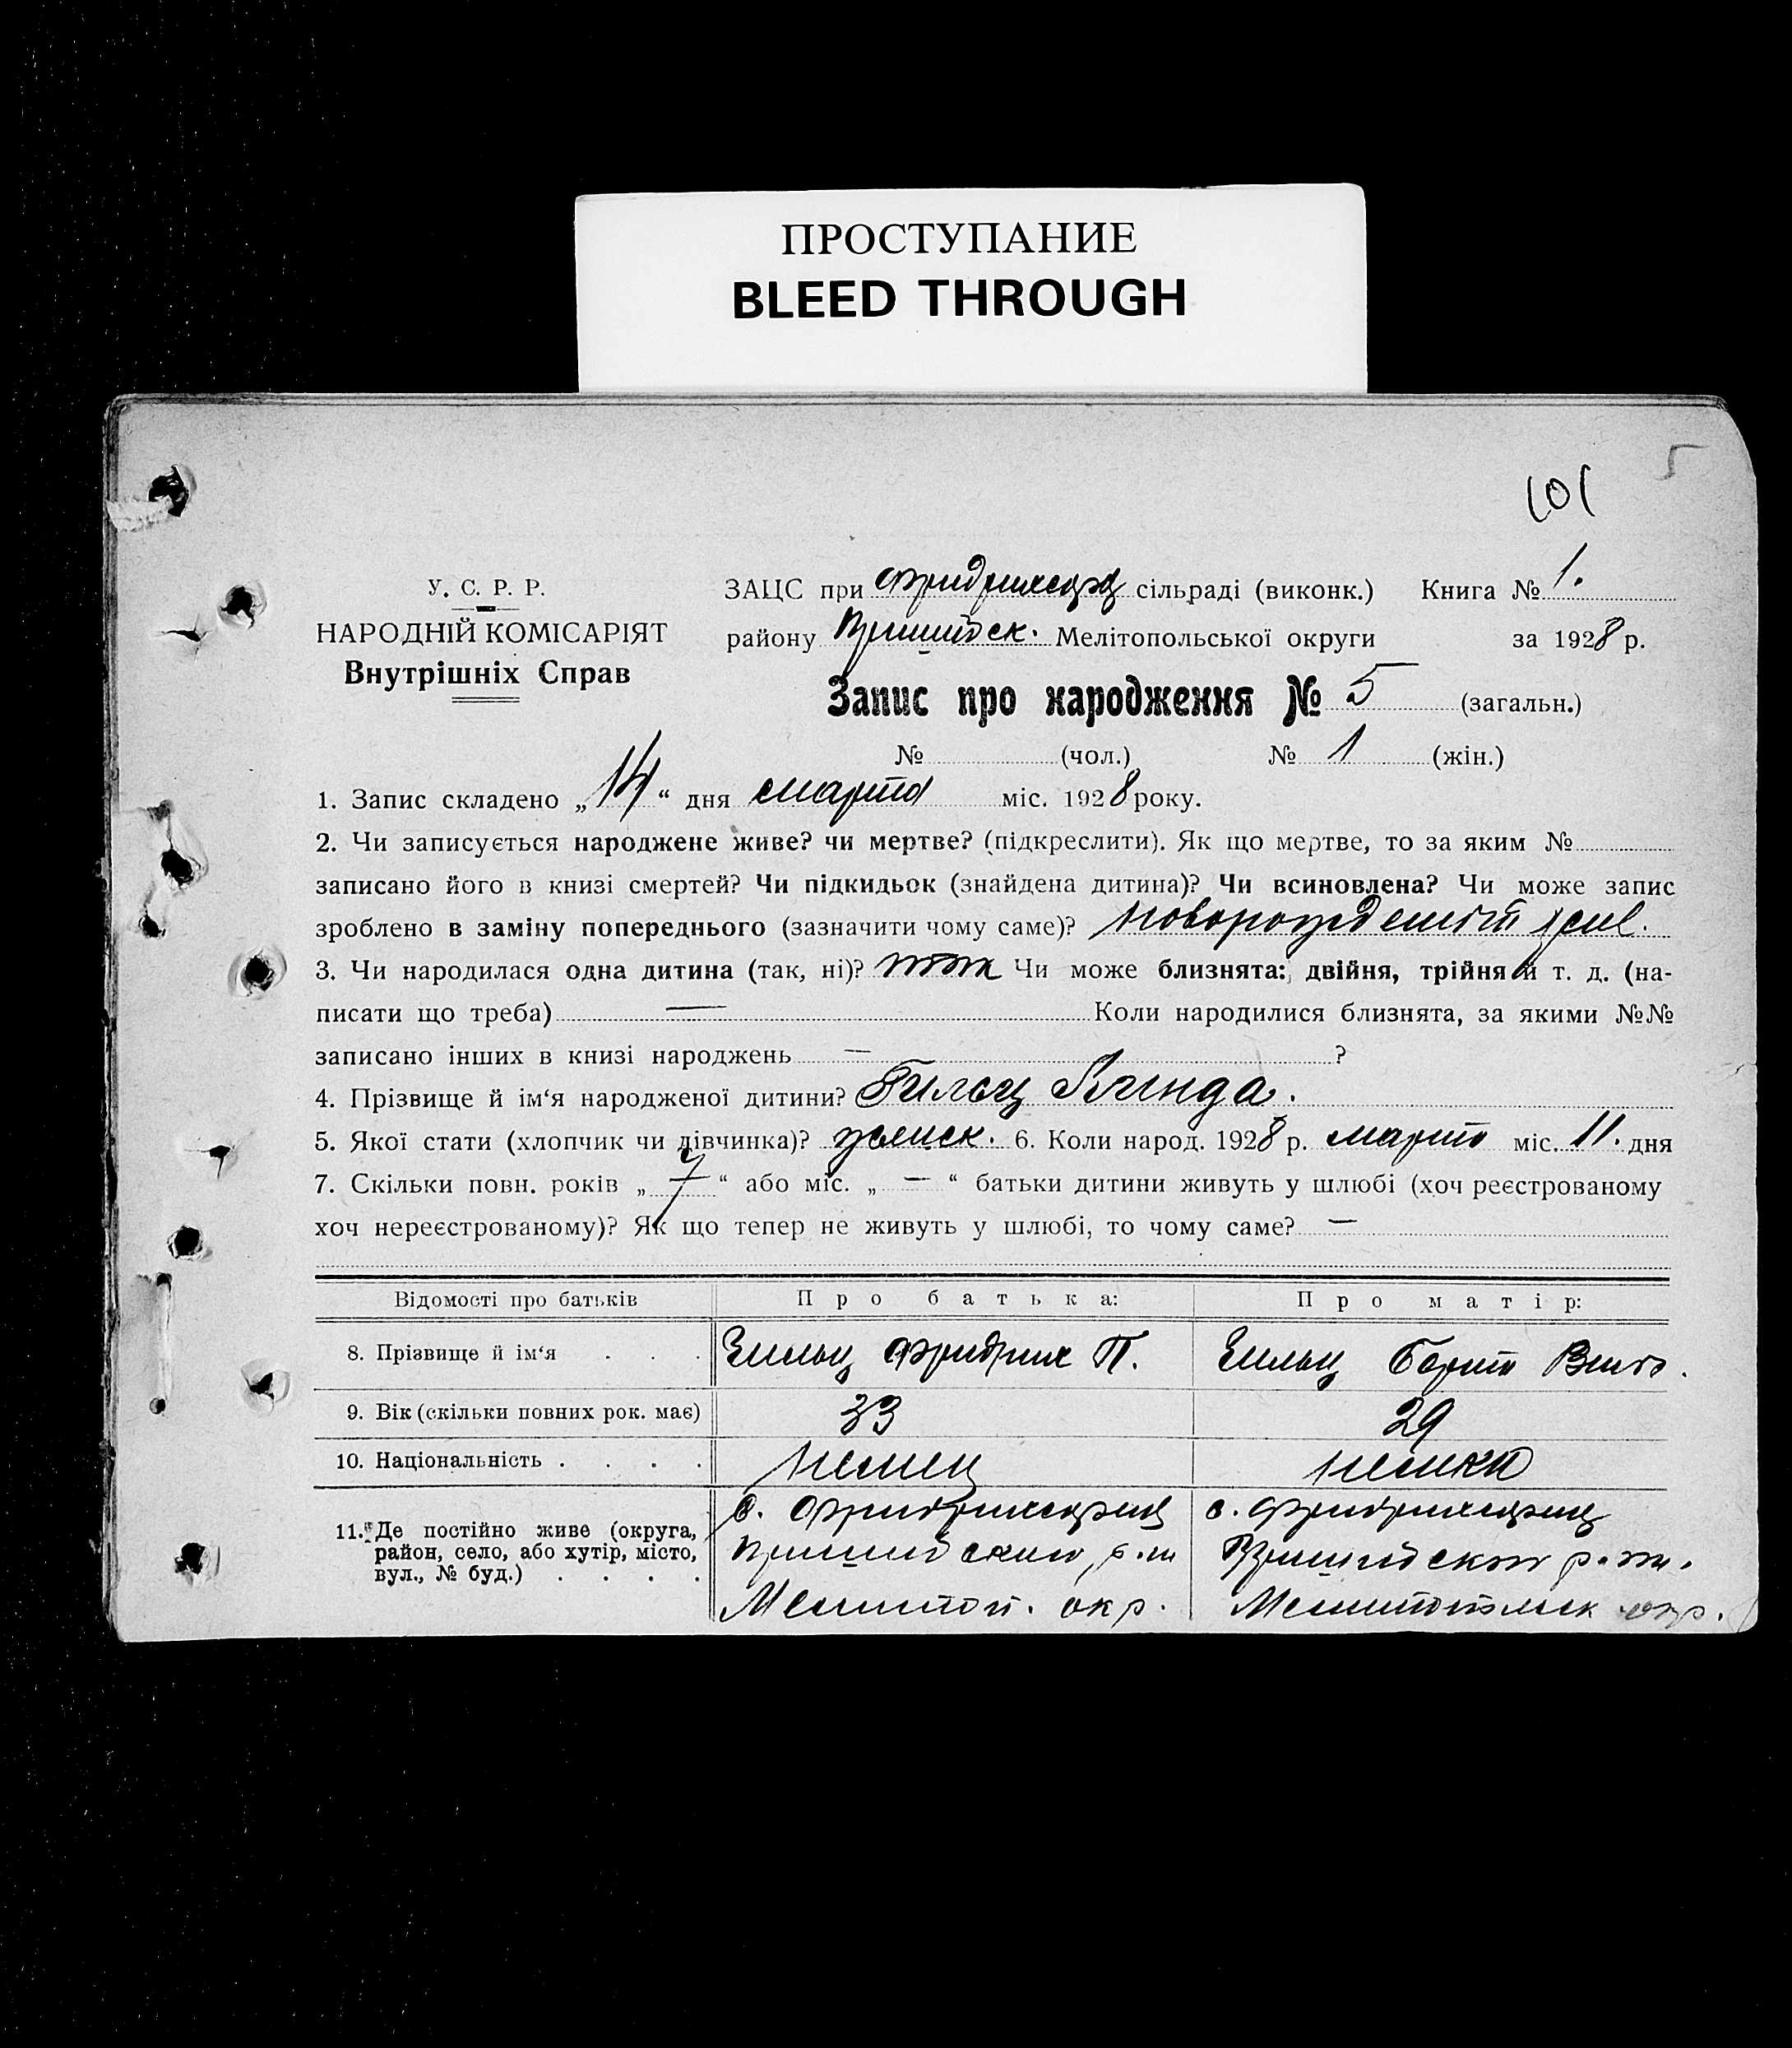 ПРОСТУПАНИЕ
BLEED THROUGH
5
101
У. С. Р. Р.
НАРОДНІЙ КОМІСАРІЯТ
Внутрішніх Справ
ЗАЦС при сільраді (виконк.) Книга № 1.
району Пришибск. Мелітопольської округи за 1928 р.
Запис про народження № 5 (загальн.)
№ (чол.) № 1 (жін.)
1. Запис складено „14“ дня марта міс. 1928 року.
2. Чи записується народжене живе? чи мертве? (підкреслити). Як що мертве, то за яким №
записано його в книзі смертей? Чи підкидьок (знайдена дитина)? Чи всиновлена? Чи може запис
зроблено в заміну попереднього (зазначити чому саме)?
3. Чи народилася одна дитина (так, ні)? так Чи може близнята: двійня, трійня й т. д. (на-
писати що треба) — Коли народилися близнята, за якими №№
записано інших в книзі народжень — ?
4. Прізвище й ім‘я народженої дитини? Гильц Линда.
5. Якої стати (хлопчик чи дівчинка)? женск. 6. Коли народ. 1928 р. марта міс. 11. дня
7. Скільки повн. років „7“ або міс. „—“ батьки дитини живуть у шлюбі (хоч реєстрованому
хоч нереєстрованому)? Як що тепер не живуть у шлюбі, то чому саме? —
Відомості про батьків Про батька: Про матір:
8. Прізвище й ім‘я . . . Гильц Фридрих П. Гильц
9. Вік (скільки повних рок. має) 33 29
10. Національність . . . . немец немка
11. Де постійно живе (округа,
район, село, або хутір, місто,
вул., № буд.) . . . .
с.
Пришибский р.н
Мелитоп. окр.
с.
Пришибский р.н.
Мелитопольск окр.